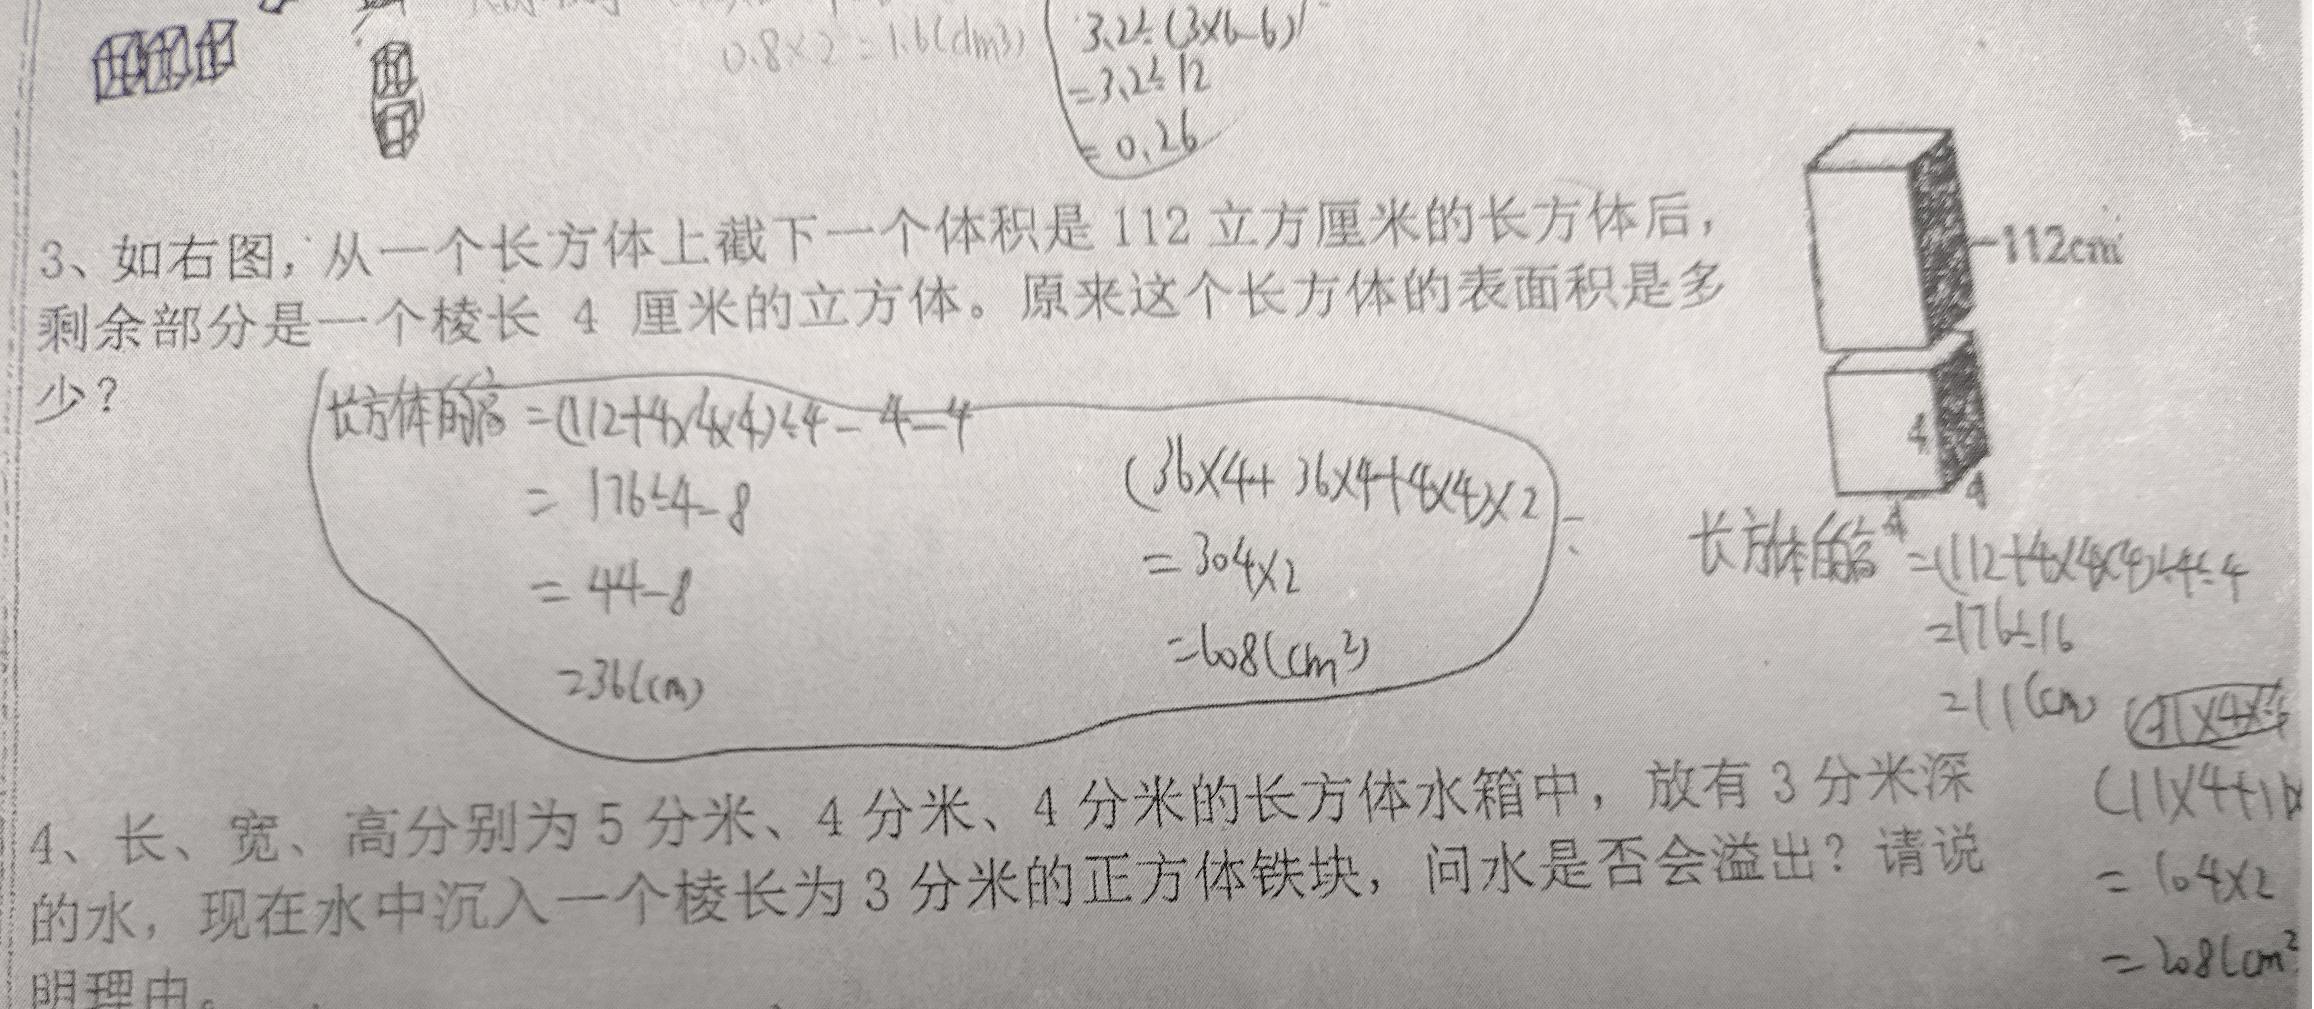 0.8×2=1.6(dm³)
3.2÷(3×6-6)
=3.2÷12
=0.26
3、如右图，从一个长方体上截下一个体积是112立方厘米的长方体后，
剩余部分是一个棱长 4 厘米的立方体。原来这个长方体的表面积是多
少？
112cm³
4
4
4
长方体的高=(112+4×4×4)÷4-4-4
=176÷4-8
=44-8
=36(cm)
(36×4+36×4+4×4)×2
=304×2
=608(cm²)
长方体的高=(112+4×4×4)÷4÷4
=176÷16
=11(cm)
(11×4+11×
=104×2
=208(cm²
4、长、宽、高分别为5分米、4分米、4分米的长方体水箱中，放有3分米深
的水，现在水中沉入一个棱长为3分米的正方体铁块，问水是否会溢出？请说
明理由。